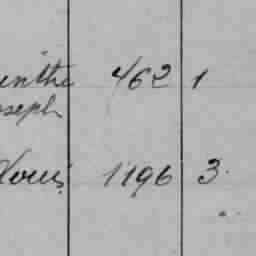 inthe 462 1
oseph
Louis 1196 3